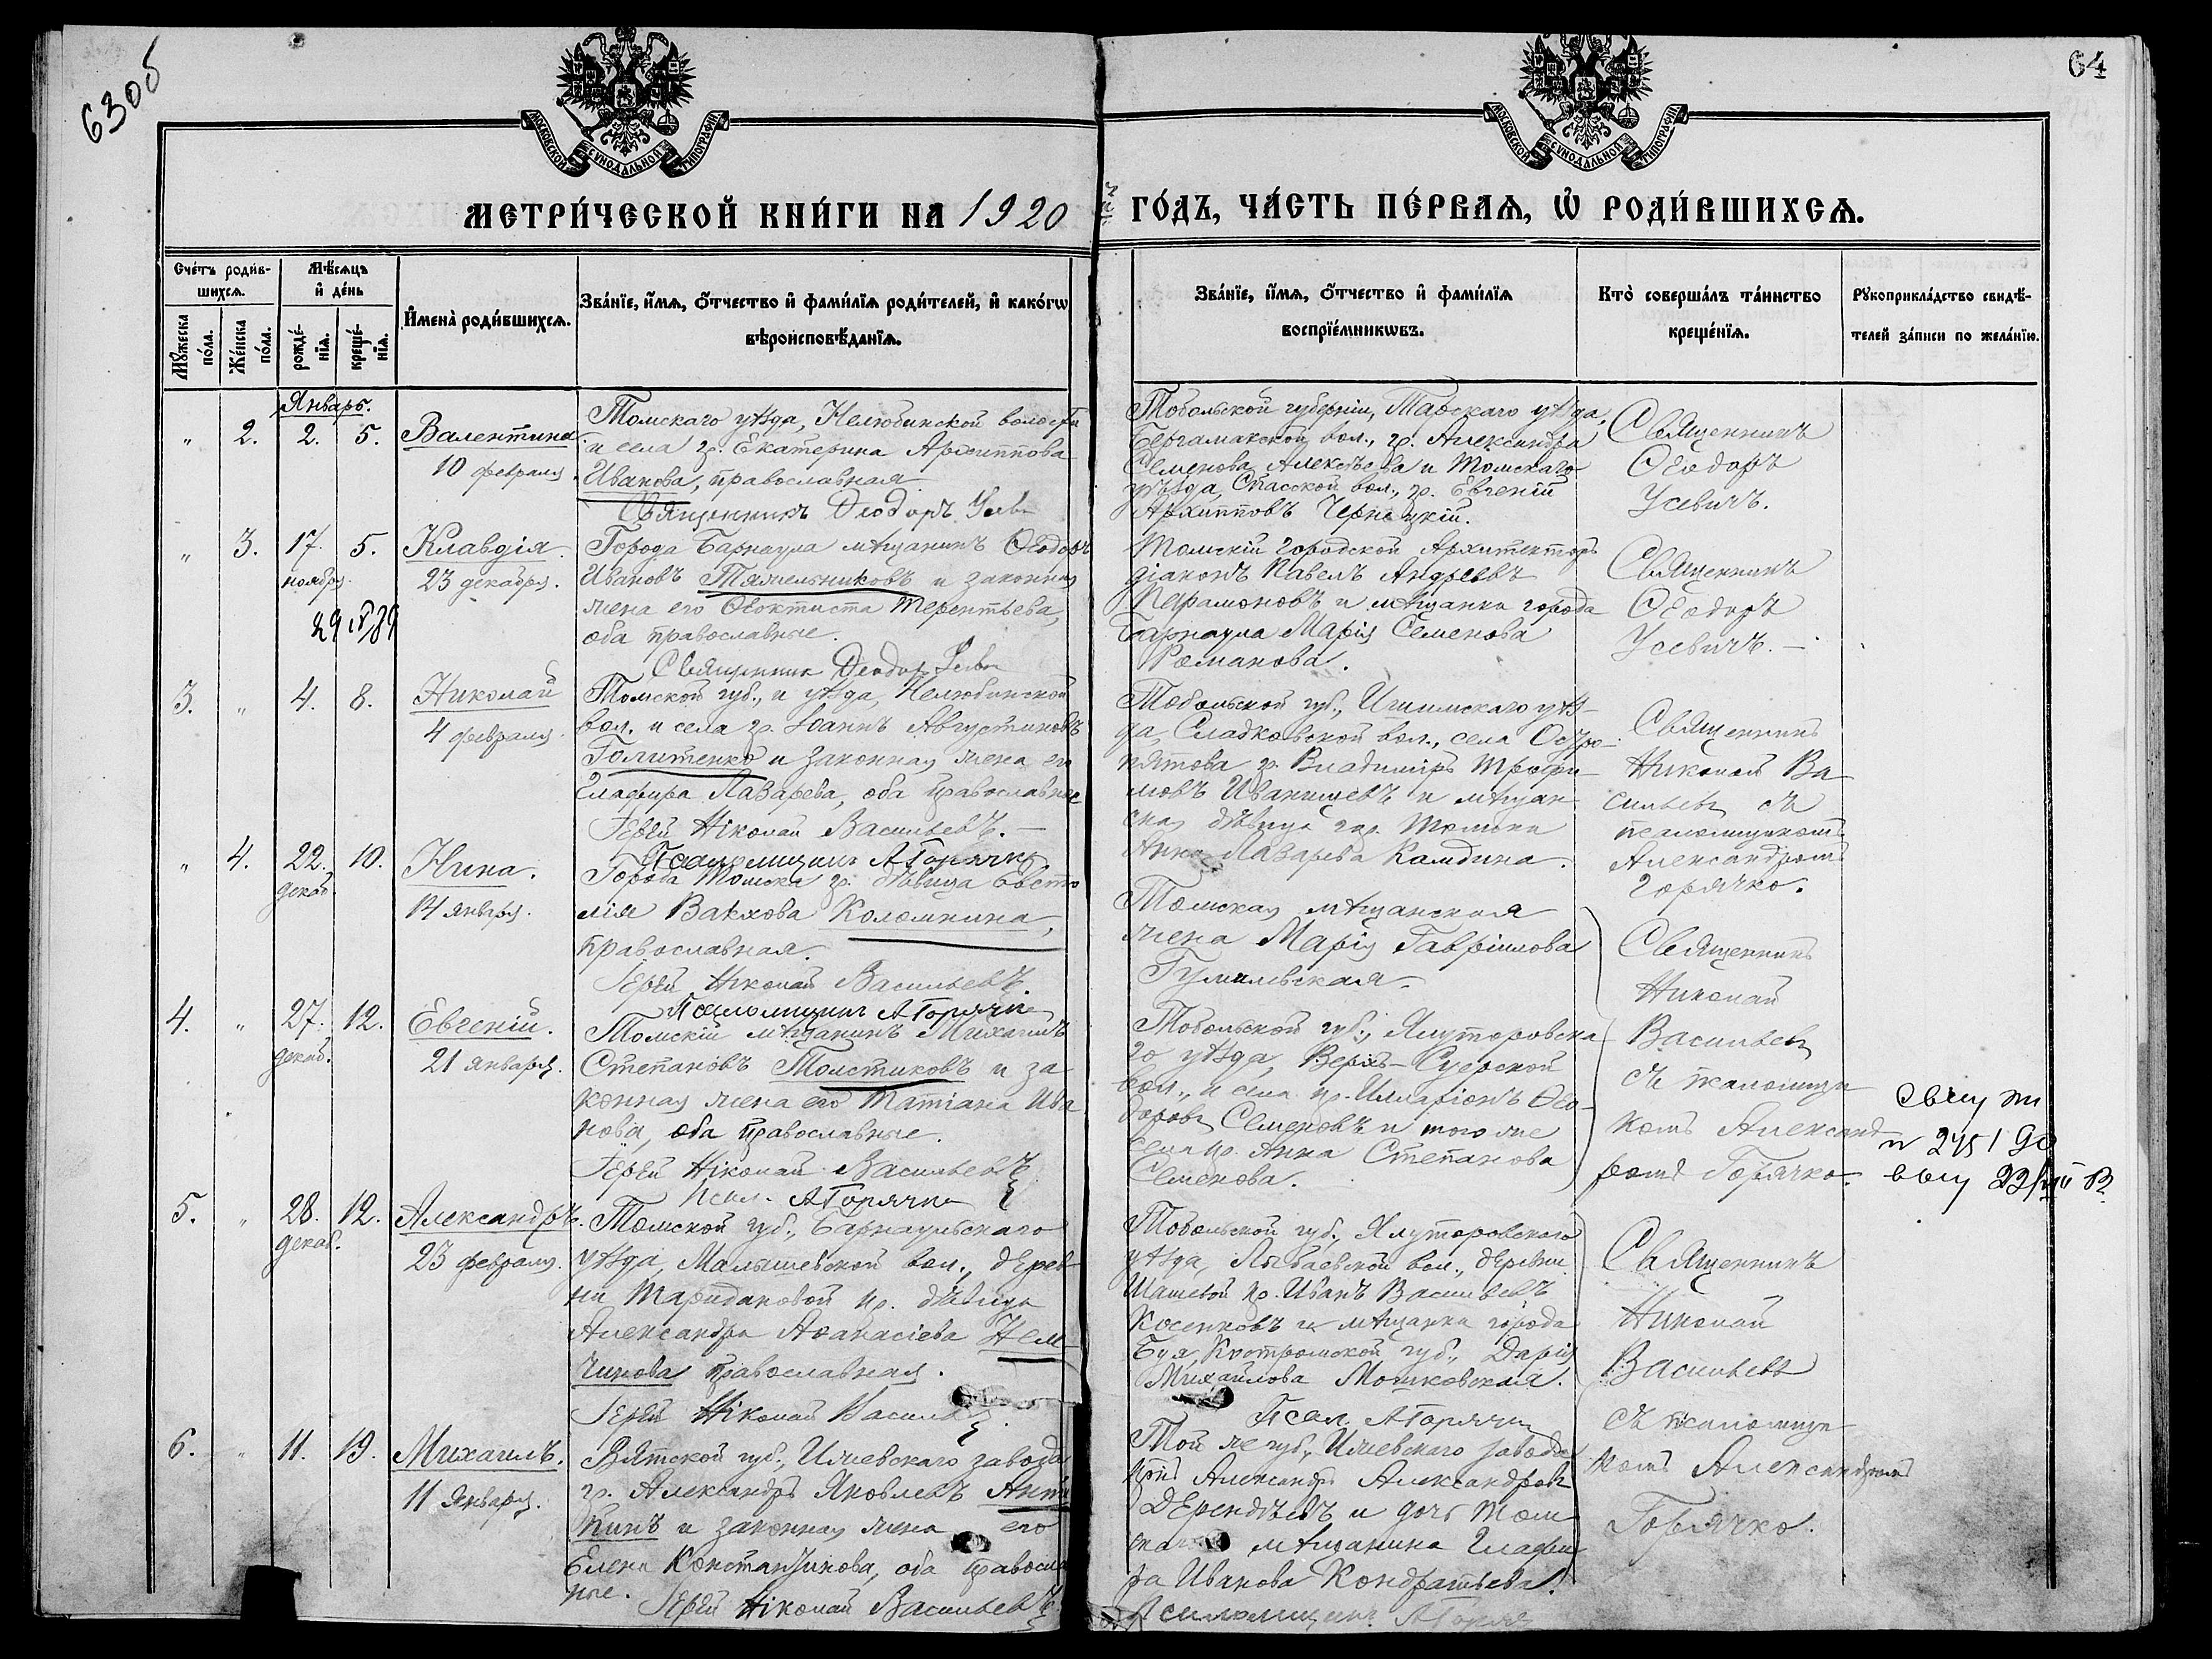 63об
64
МОСКОВСКОЙ СѴНОДАЛЬНОЙ ТИПОГРАФІИ
МОСКОВСКОЙ СѴНОДАЛЬНОЙ ТИПОГРАФІИ
МЕТРИ́ЧЕСКОЙ КНИ́ГИ НА 1920 ГО́ДЪ, ЧА́СТЬ ПЕ́РВАѦ, Ѡ РОДИ́ВШИХСѦ.
Сче́тъ роди́в-
шихсѧ.
Мꙋжеска по́ла.
Же́нска по́ла.
Мѣ́сѧцъ
и҆ де́нь
рожде́-
нїѧ.
креще́-
нїѧ.
И҆мена̀ роди́вшихсѧ.
Зва́нїе, и҆́мѧ, ѻ҆́тчество и҆ фами́лїѧ роди́телей, и҆ како́гѡ
вѣроисповѣ́данїѧ.
Зва́нїе, и҆́мѧ, ѻ҆́тчество и҆ фами́лїѧ
воспрїе́мникѡвъ.
Кто̀ соверша́лъ та́инство
креще́нїѧ.
Рꙋкоприкла́дство свидѣ́-
телей за́писи по жела́нїю.
Январь.
" 2. 2. 5. Валентина
10 февраля
Томскаго уѣзда, Нелюбинской волости
и села гр. Екатерина Архиппова
Иванова, православная
Священникъ Ѳеодоръ Усев
Тобольской губерніи, Тарскаго уѣзда,
Бергамакской вол., гр. Александра
Семенова Алексѣева и Томскаго
уѣзда, Спасской вол., гр. Евгеній
Архипповъ Чернецкій.
Священникъ
Ѳеодоръ
Усевичъ.
" 3. 17. ноября 5. Клавдія.
23 декабря.
29
Города Барнаула мѣщанинъ Ѳеодоръ
Ивановъ Тяжельниковъ и законная
жена его Ѳеоктиста Терентьева,
оба православные.
Священник Ѳеодор Усев
Томскій городской Архитекторъ
діаконъ Павелъ Андреевъ
Парамоновъ и мѣщанка города
Барнаула Марія Семенова
Романова.
Священникъ
Ѳеодоръ
Усевичъ.
3. " 4. 8. Николай
4 февраля.
Томской губ., и уѣзда, Нелюбинской
вол. и села гр. Іоаннъ Августиновъ
Голитенко и законная жена его
Глафира Лазарева, оба православные
Іерей Ніколай Васильевъ.
Псаломщикъ А Горячко
Тобольской губ., Ишимскаго уѣз-
да, Сладковской вол., села
гр. Владиміръ Трофи-
мовъ Иванищевъ и мѣщан-
ская дѣвица гор. Томска
Анна Лазарева Камдина.
Священникъ
Николай Ва-
сильевъ съ
псаломщикомъ
Александромъ
Горячко.
" 4. 22. декаб. 10. Нина.
14 января.
Города Томска гр. дѣвица Евсто
лія Вакхова Коломнина,
православная.
Іерей Ніколай Васильевъ.
Псаломщикъ А Горячко
Томская мѣщанская
жена Марія Гавріилова
Гумилевская.
Священникъ
Николай
4. " 27. декаб. 12. Евгеній.
21 января.
Томскій мѣщанинъ Михаилъ
Степановъ Толстиковъ и за
конная жена его Татіана Ива
нова, оба православные.
Іерей Ніколай Васильевъ
Псал. А Горячко
Тобольской губ., Ялуторовска
го уѣзда, Верхъ-Суерской
вол., и села гр. Илларіонъ Ѳео-
доровъ Семеновъ и того же
села гр. Анна Степанова
Семенова.
Васильевъ
съ псаломщи-
комъ Александ
ромъ Горячко.
5. " 28. декаб. 12. Александръ.
23 февраля.
Томской губ., Барнаульскаго
уѣзда, Малышевской вол., дерев-
ни гр. дѣвица
Александра Аѳанасіева Нем-
чинова православная.
Іерей Ніколай Василь
Тобольской губ., Ялуторовскаго
уѣзда, Лыбаевской вол., деревни
Шашевой гр. Иванъ Васильевъ
Косенковъ и мѣщанка города
Буя, Костромской губ., Дарія
Михайлова Мошковская.
Псал. А Горячко
Священникъ
Николай
Васильевъ
6. " 11. 19. Михаилъ.
11 января.
Вятской губ., Ижевскаго завода
гр. Александръ Яковлевъ Анти
кинъ и законная жена его
Елена Константинова, оба правосла
ные. Іерей Ніколай Васильевъ
Той же губ., Ижевскаго завода
Александръ Александров
Дерендяевъ и дочь Том
скаго мѣщанина Глафи-
ра Иванова Кондратьева.
Псаломщикъ А Горяч
съ псаломщи-
комъ Александромъ
Горячко.